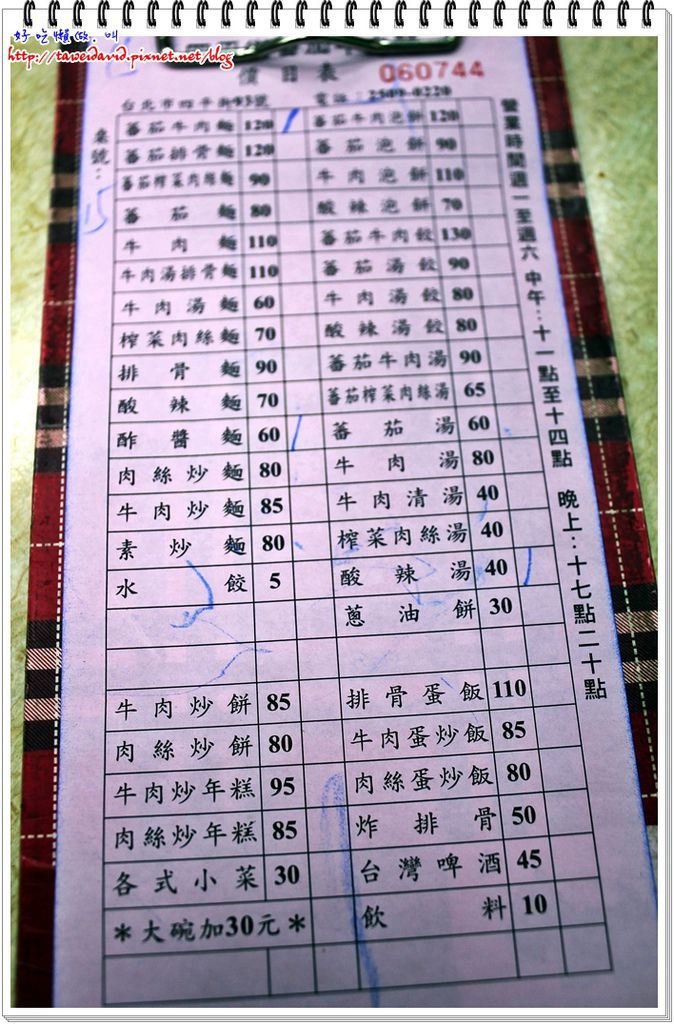 好吃懶做.叫
http://taweidavid.pixnet.net/blog
價目表 060744
台北市四平街93號 電話:2509-0220
桌號: 15
蕃茄牛肉麵 120 蕃茄牛肉泡餅 120
蕃茄排骨麵 120 蕃茄泡餅 90
蕃茄榨菜肉絲麵 90 牛肉泡餅 110
蕃茄麵 80 酸辣泡餅 70
牛肉麵 110 蕃茄牛肉餃 130
牛肉湯排骨麵 110 蕃茄湯餃 90
牛肉湯麵 60 牛肉湯餃 80
榨菜肉絲麵 70 酸辣湯餃 80
排骨麵 90 蕃茄牛肉湯 90
酸辣麵 70 蕃茄榨菜肉絲湯 65
酢醬麵 60 蕃茄湯 60
肉絲炒麵 80 牛肉湯 80
牛肉炒麵 85 牛肉清湯 40
素炒麵 80 榨菜肉絲湯 40
水餃 5 酸辣湯 40
蔥油餅 30
牛肉炒餅 85 排骨蛋飯 110
肉絲炒餅 80 牛肉蛋炒飯 85
牛肉炒年糕 95 肉絲蛋炒飯 80
肉絲炒年糕 85 炸排骨 50
各式小菜 30 台灣啤酒 45
*大碗加30元* 飲料 10
營業時間週一至週六 中午:十一點至十四點 晚上:十七點二十點